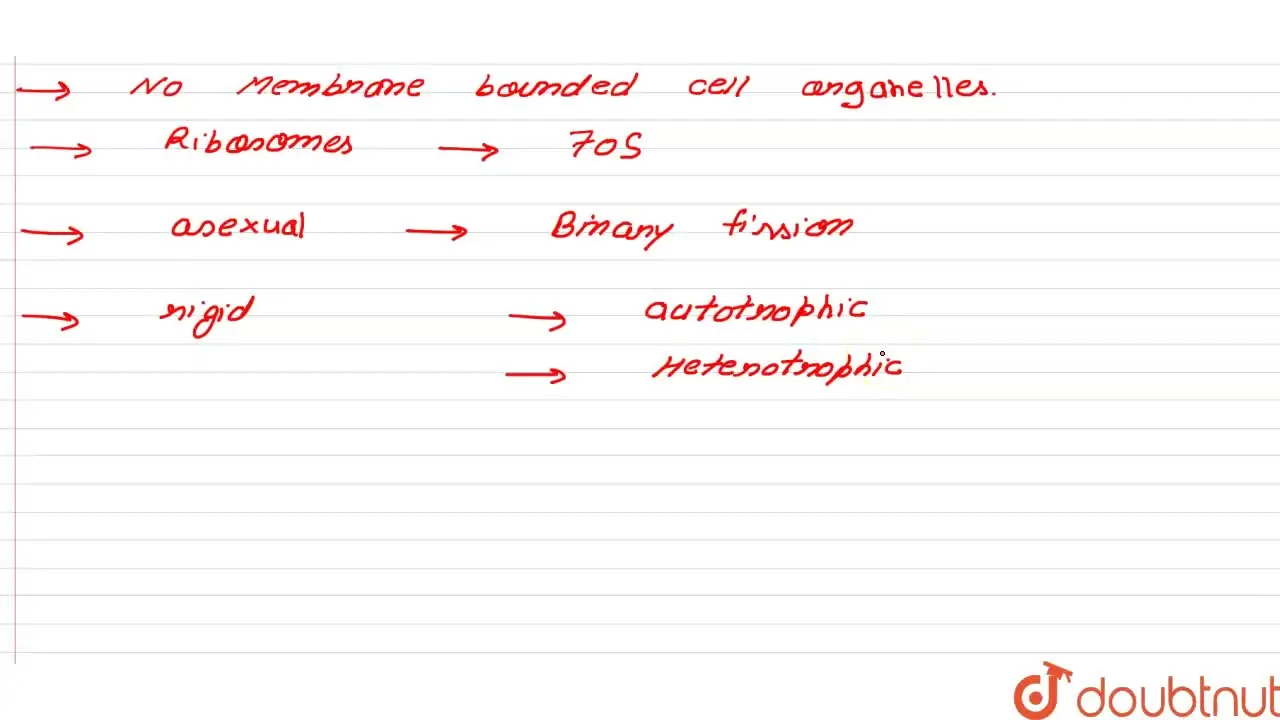 → No Membrane bounded cell organelles.
→ Ribosomes → 70S
→ asexual → Binary fission
→ rigid → autotrophic
→ Heterotrophic
doubtnut